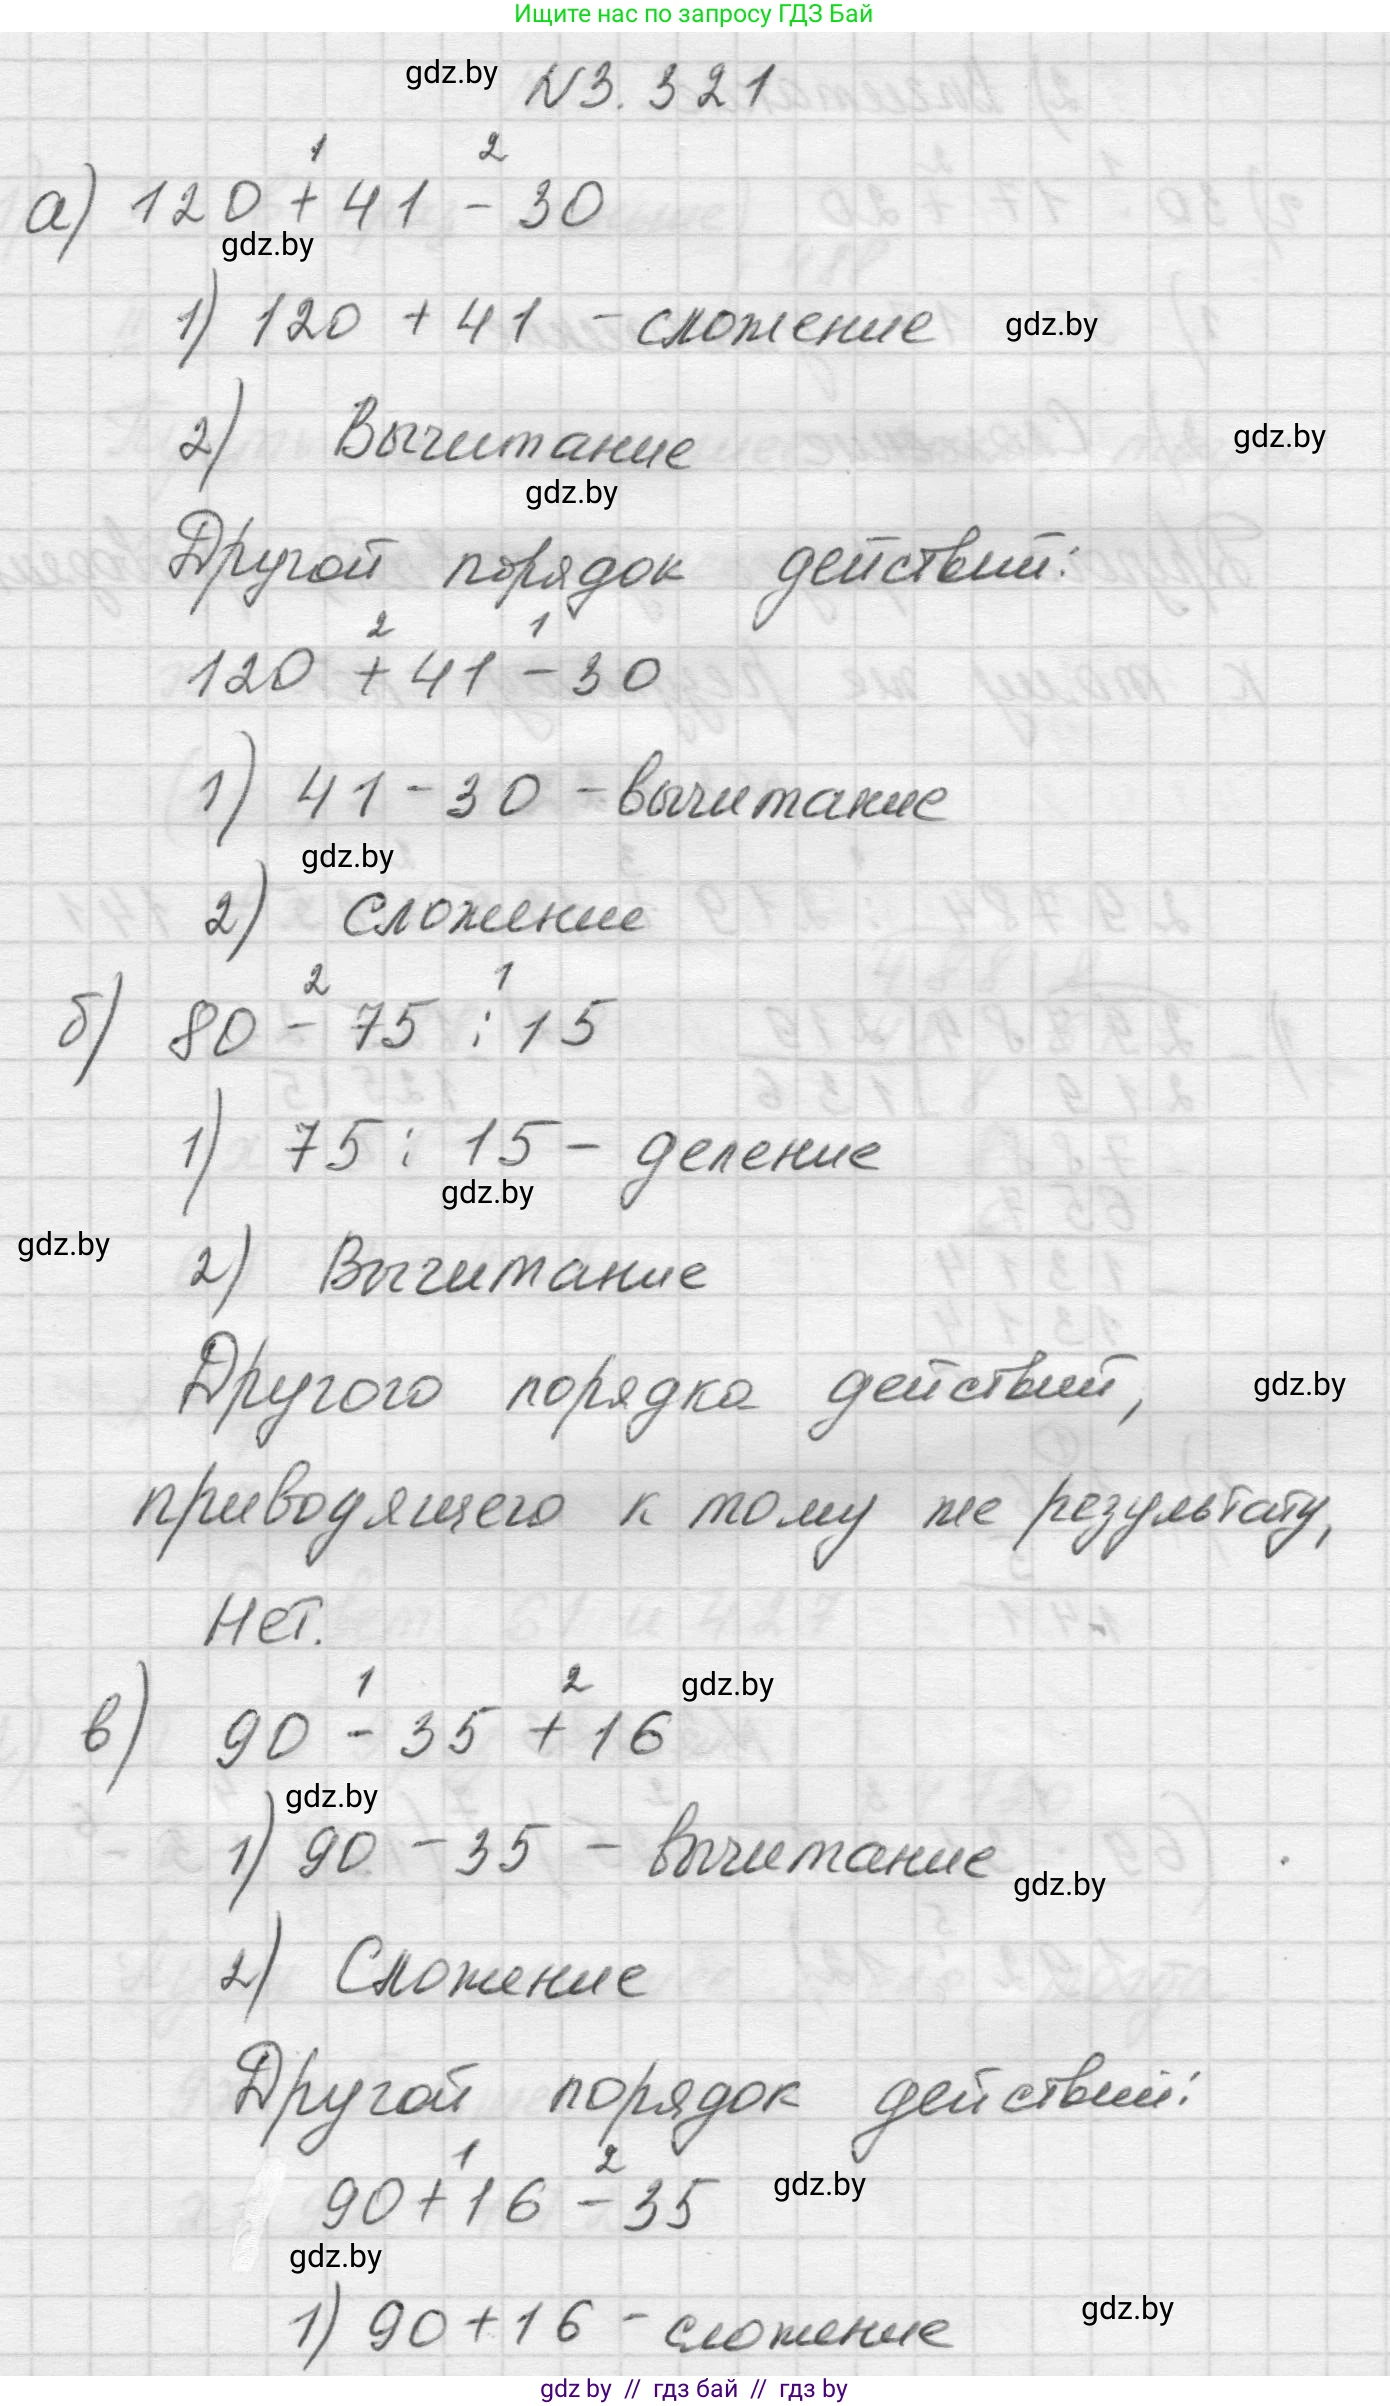 Ищите нас по запросу ГДЗ Бай
gdz.by
N3.321
1 2
а) 120 + 41 - 30
gdz.by
1) 120 + 41 - сложение
gdz.by
2) Вычитание
gdz.by
gdz.by
Другой порядок действий:
2 1
120 + 41 - 30
1) 41 - 30 - вычитание
gdz.by
2) сложение
2 1
б) 80 - 75 : 15
1) 75 : 15 - деление
gdz.by
gdz.by
2) Вычитание
Другого порядка действий,
gdz.by
приводящего к тому же результату,
Нет.
1 2
gdz.by
в) 90 - 35 + 16
gdz.by
1) 90 - 35 - вычитание
gdz.by
2) Сложение
Другой порядок действий:
1 2
90 + 16 - 35
gdz.by
gdz.by
1) 90 + 16 - сложение
gdz.by
gdz by // гдз бай // гдз by